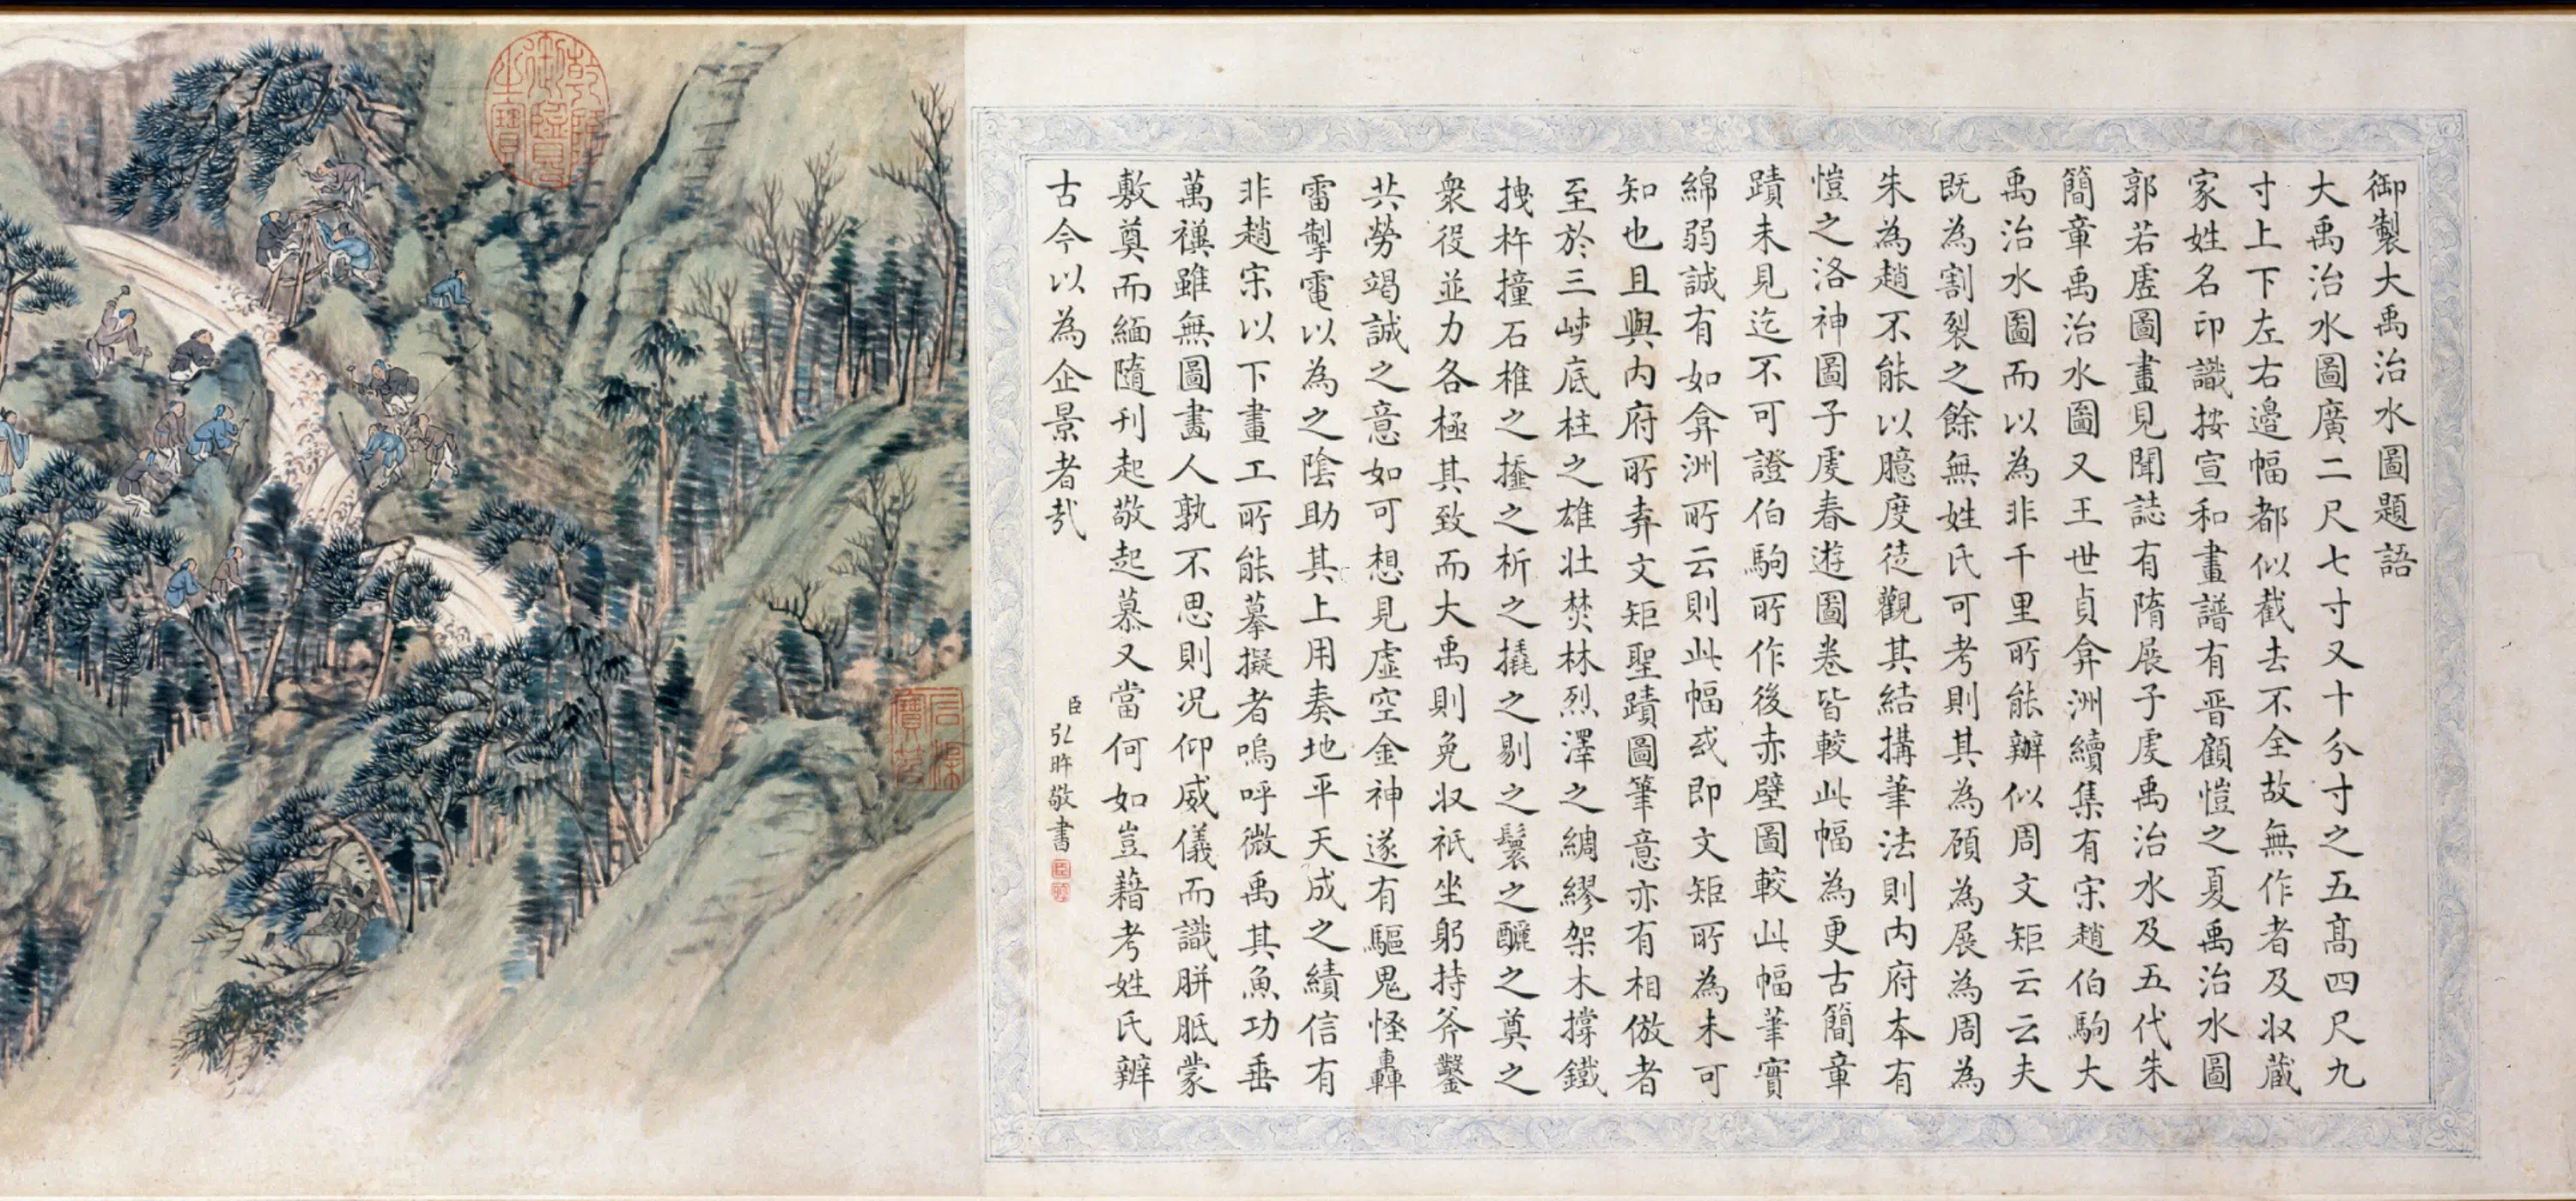 御製大禹治水圖題語
大禹治水圖廣二尺七寸又十分寸之五髙四尺九
寸上下左右邉幅都似截去不全故無作者及収蔵
家姓名印識按宣和畫譜有晋顧愷之夏禹治水圖
郭若虚圖畫見聞誌有隋展子虔禹治水及五代朱
簡章禹治水圖又王世貞弇洲續集有宋趙伯駒大
禹治水圖而以為非千里所能辦似周文矩云云夫
既為割裂之餘無姓氏可考則其為顧為展為周為
朱為趙不能以臆度徒觀其結搆筆法則内府本有
愷之洛神圖子虔春遊圖卷皆較此幅為更古簡章
蹟未見迄不可證伯駒所作後赤壁圖較此幅筆實
綿弱誠有如弇洲所云則此幅或即文矩所為未可
知也且與内府所弆文矩聖蹟圖筆意亦有相倣者
至於三峽底柱之雄壮焚林烈澤之綢繆架木撐鐵
拽杵撞石椎之㨻之析之撬之剔之鬟之釃之奠之
衆役並力各極其致而大禹則免収祇坐躬持斧鑿
共勞竭誠之意如可想見虛空金神遂有驅鬼怪轟
雷掣電以為之陰助其上用奏地平天成之績信有
非趙宋以下畫工所能摹擬者嗚呼微禹其魚功垂
萬禩雖無圖畵人孰不思則况仰威儀而識胼胝蒙
敷奠而緬隨刊起敬起慕又當何如豈藉考姓氏辨
古今以為企景者㢤
臣弘旿敬書
乾隆御覽之寶